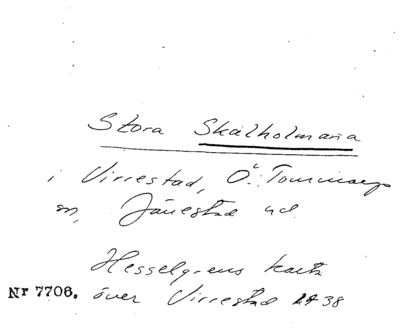 Stora Skälholmarna
i Virrestad, Ö. Tommarps
sn, Järrestad hd.
Hesselgrens karta
Nr 7706. över Virrestad 1738